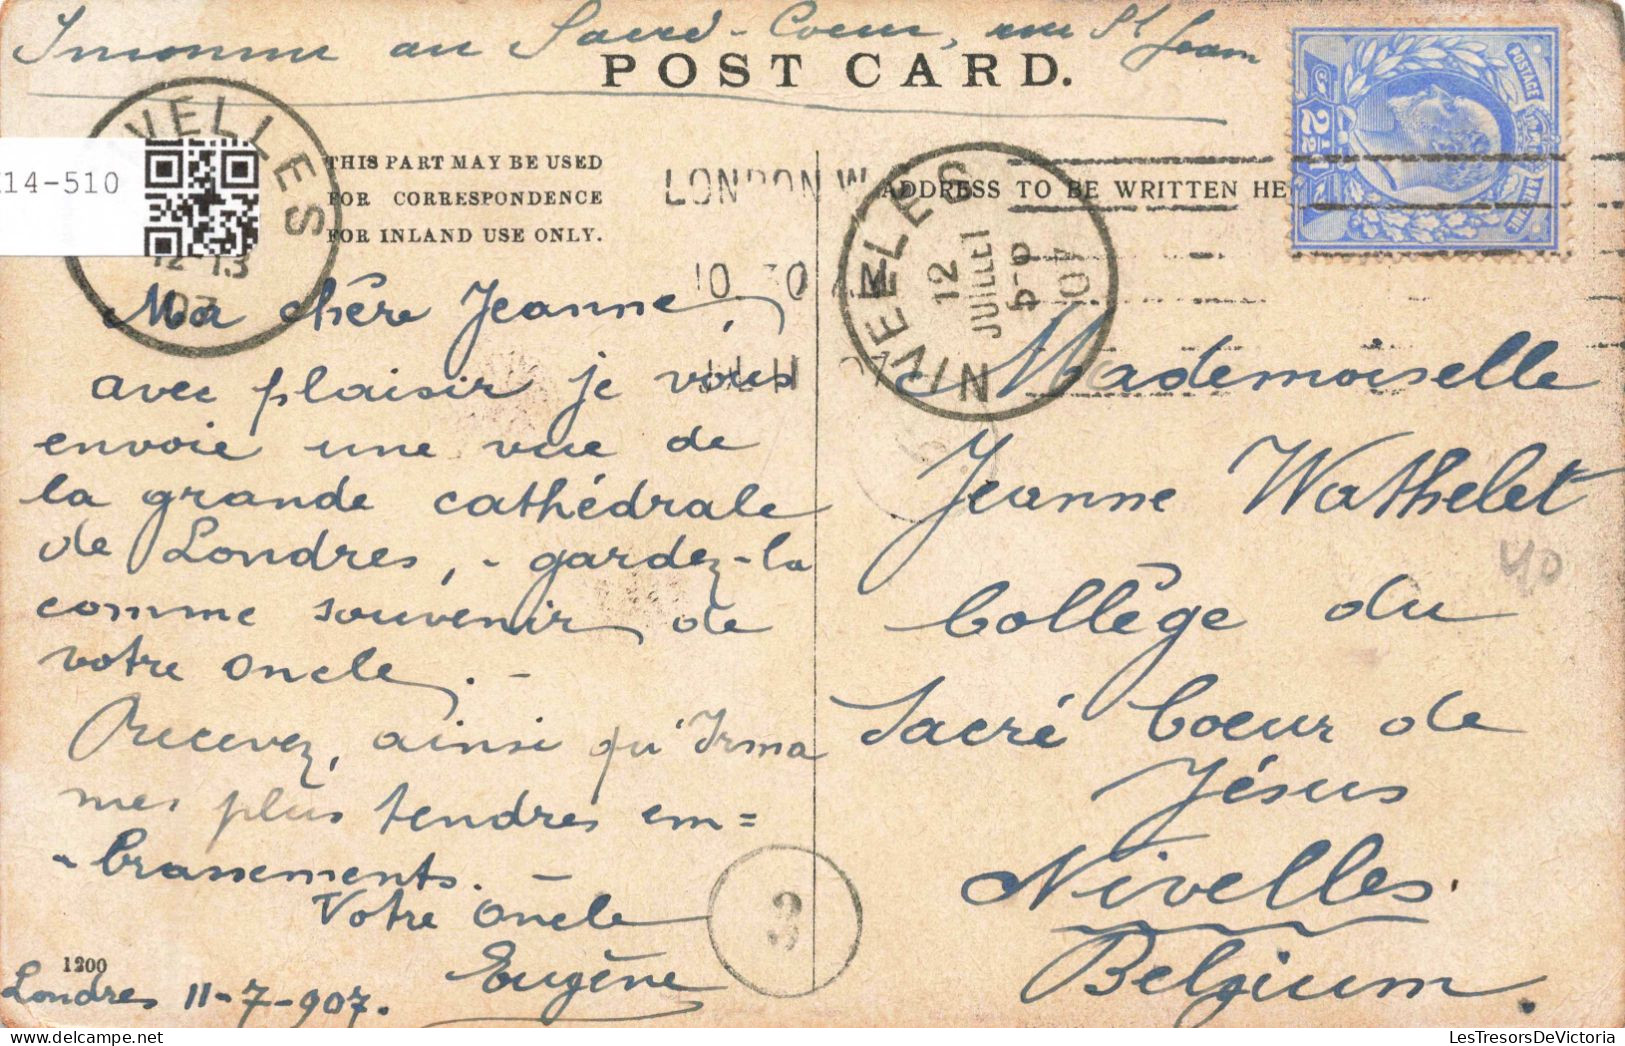 Inconnu au Sacré-Coeur, rue St Jean
POST CARD.
THIS PART MAY BE USED
FOR CORRESPONDENCE
FOR INLAND USE ONLY.
ADDRESS TO BE WRITTEN HE
LONDON W
10 30 A
JUL 11
07
NIVELLES
12
JUILLET
5-6
07
VELLES
12-13
07
POSTAGE
2½
14-510
Ma chère Jeanne,
avec plaisir je vous
envoie une vue de
la grande cathédrale
de Londres, - gardez-la
comme souvenir de
votre oncle. -
Recevez, ainsi qu'Irma
mes plus tendres em=
- brassements. -
Votre oncle
Eugène
1200
Londres 11-7-907.
3
Mademoiselle
Jeanne Wathelet
Collège du
Sacré Coeur de
Jésus
Nivelles.
Belgium.
40
LesTresorsDeVictoria